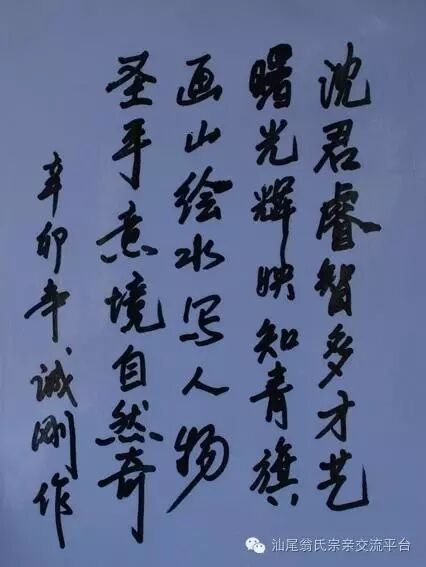 沈君睿智多才艺
曙光辉映知青旗
画山绘水写人物
圣手意境自然奇
辛卯年诚刚作
汕尾翁氏宗亲交流平台